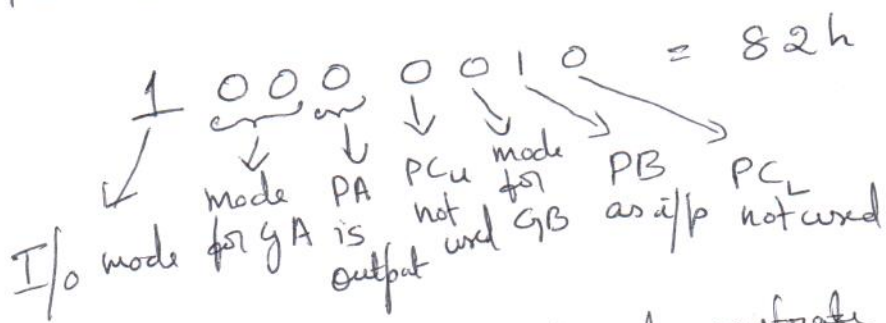 1 0 0 0 0 0 1 0 = 82h
I/o mode
mode for GA
PA is output
PCu not used
mode for GB
PB as i/p
PCL not used